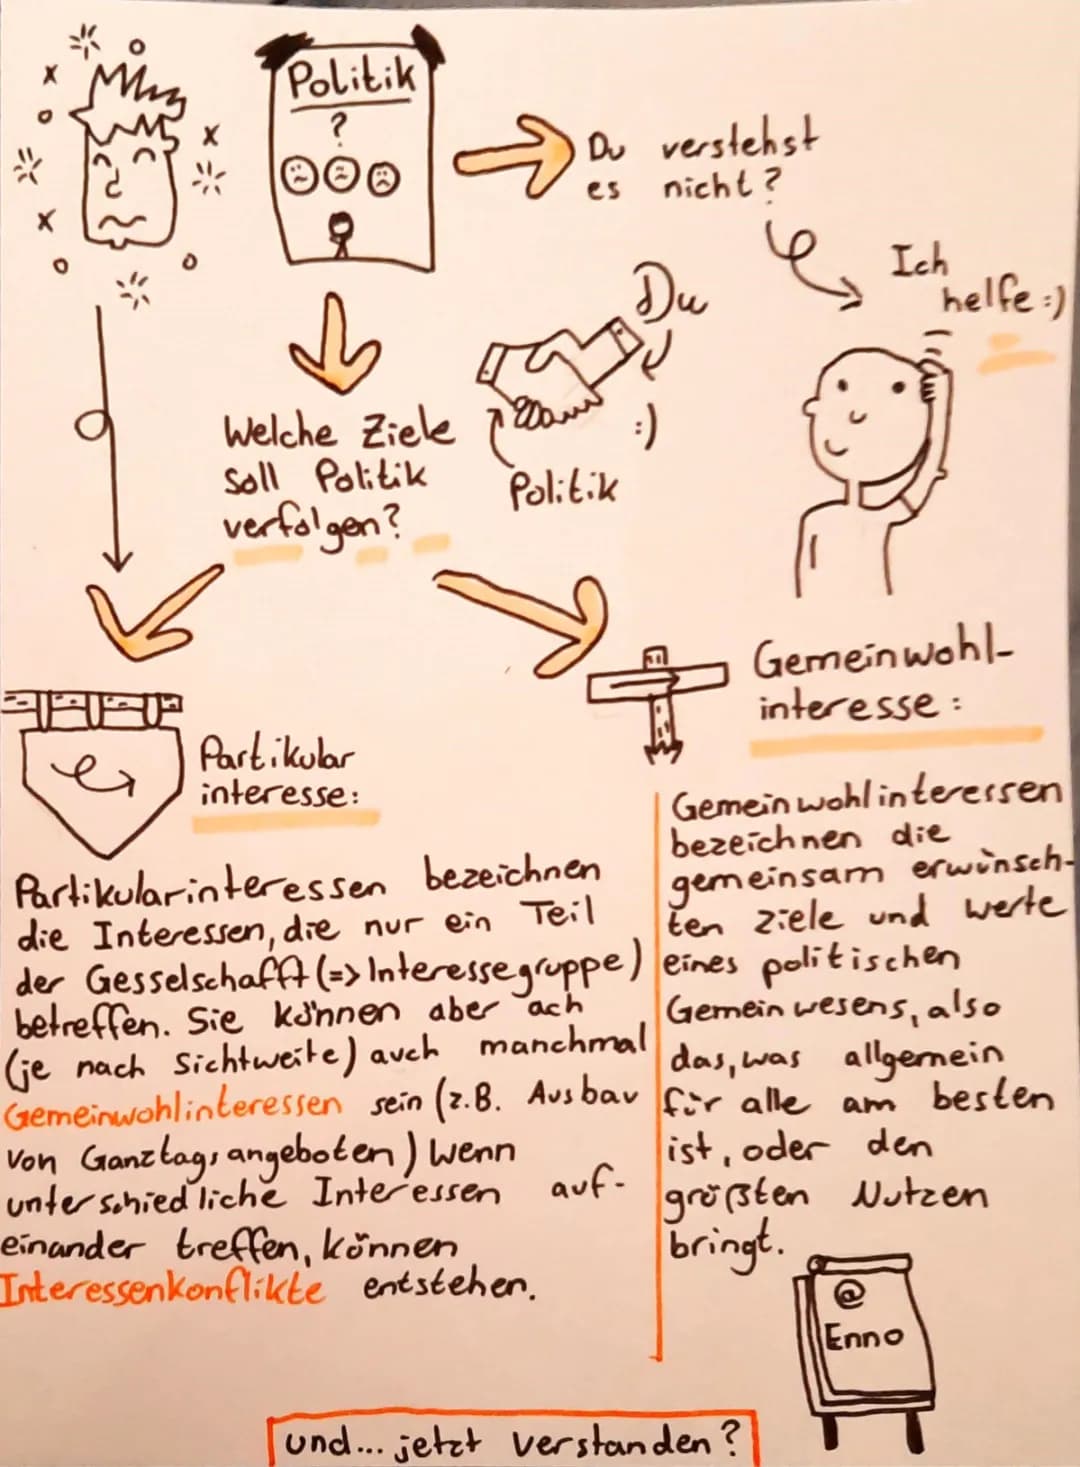 Politik
?
Du verstehst
es nicht?
Ich
helfe :)
Du
:)
Politik
Welche Ziele
soll Politik
verfolgen?
Partikular
interesse:
Partikularinteressen bezeichnen
die Interessen, die nur ein Teil
der Gesselschafft (=> Interessegruppe)
betreffen. Sie können aber ach
(je nach Sichtweite) auch manchmal
Gemeinwohlinteressen sein (z.B. Ausbau
von Ganztagsangeboten) Wenn
unterschiedliche Interessen auf-
einander treffen, können
Interessenkonflikte entstehen.
Gemeinwohl-
interesse:
Gemeinwohlinteressen
bezeichnen die
gemeinsam erwünsch-
ten Ziele und Werte
eines politischen
Gemeinwesens, also
das, was allgemein
für alle am besten
ist, oder den
größten Nutzen
bringt.
@
Enno
und... jetzt verstanden?